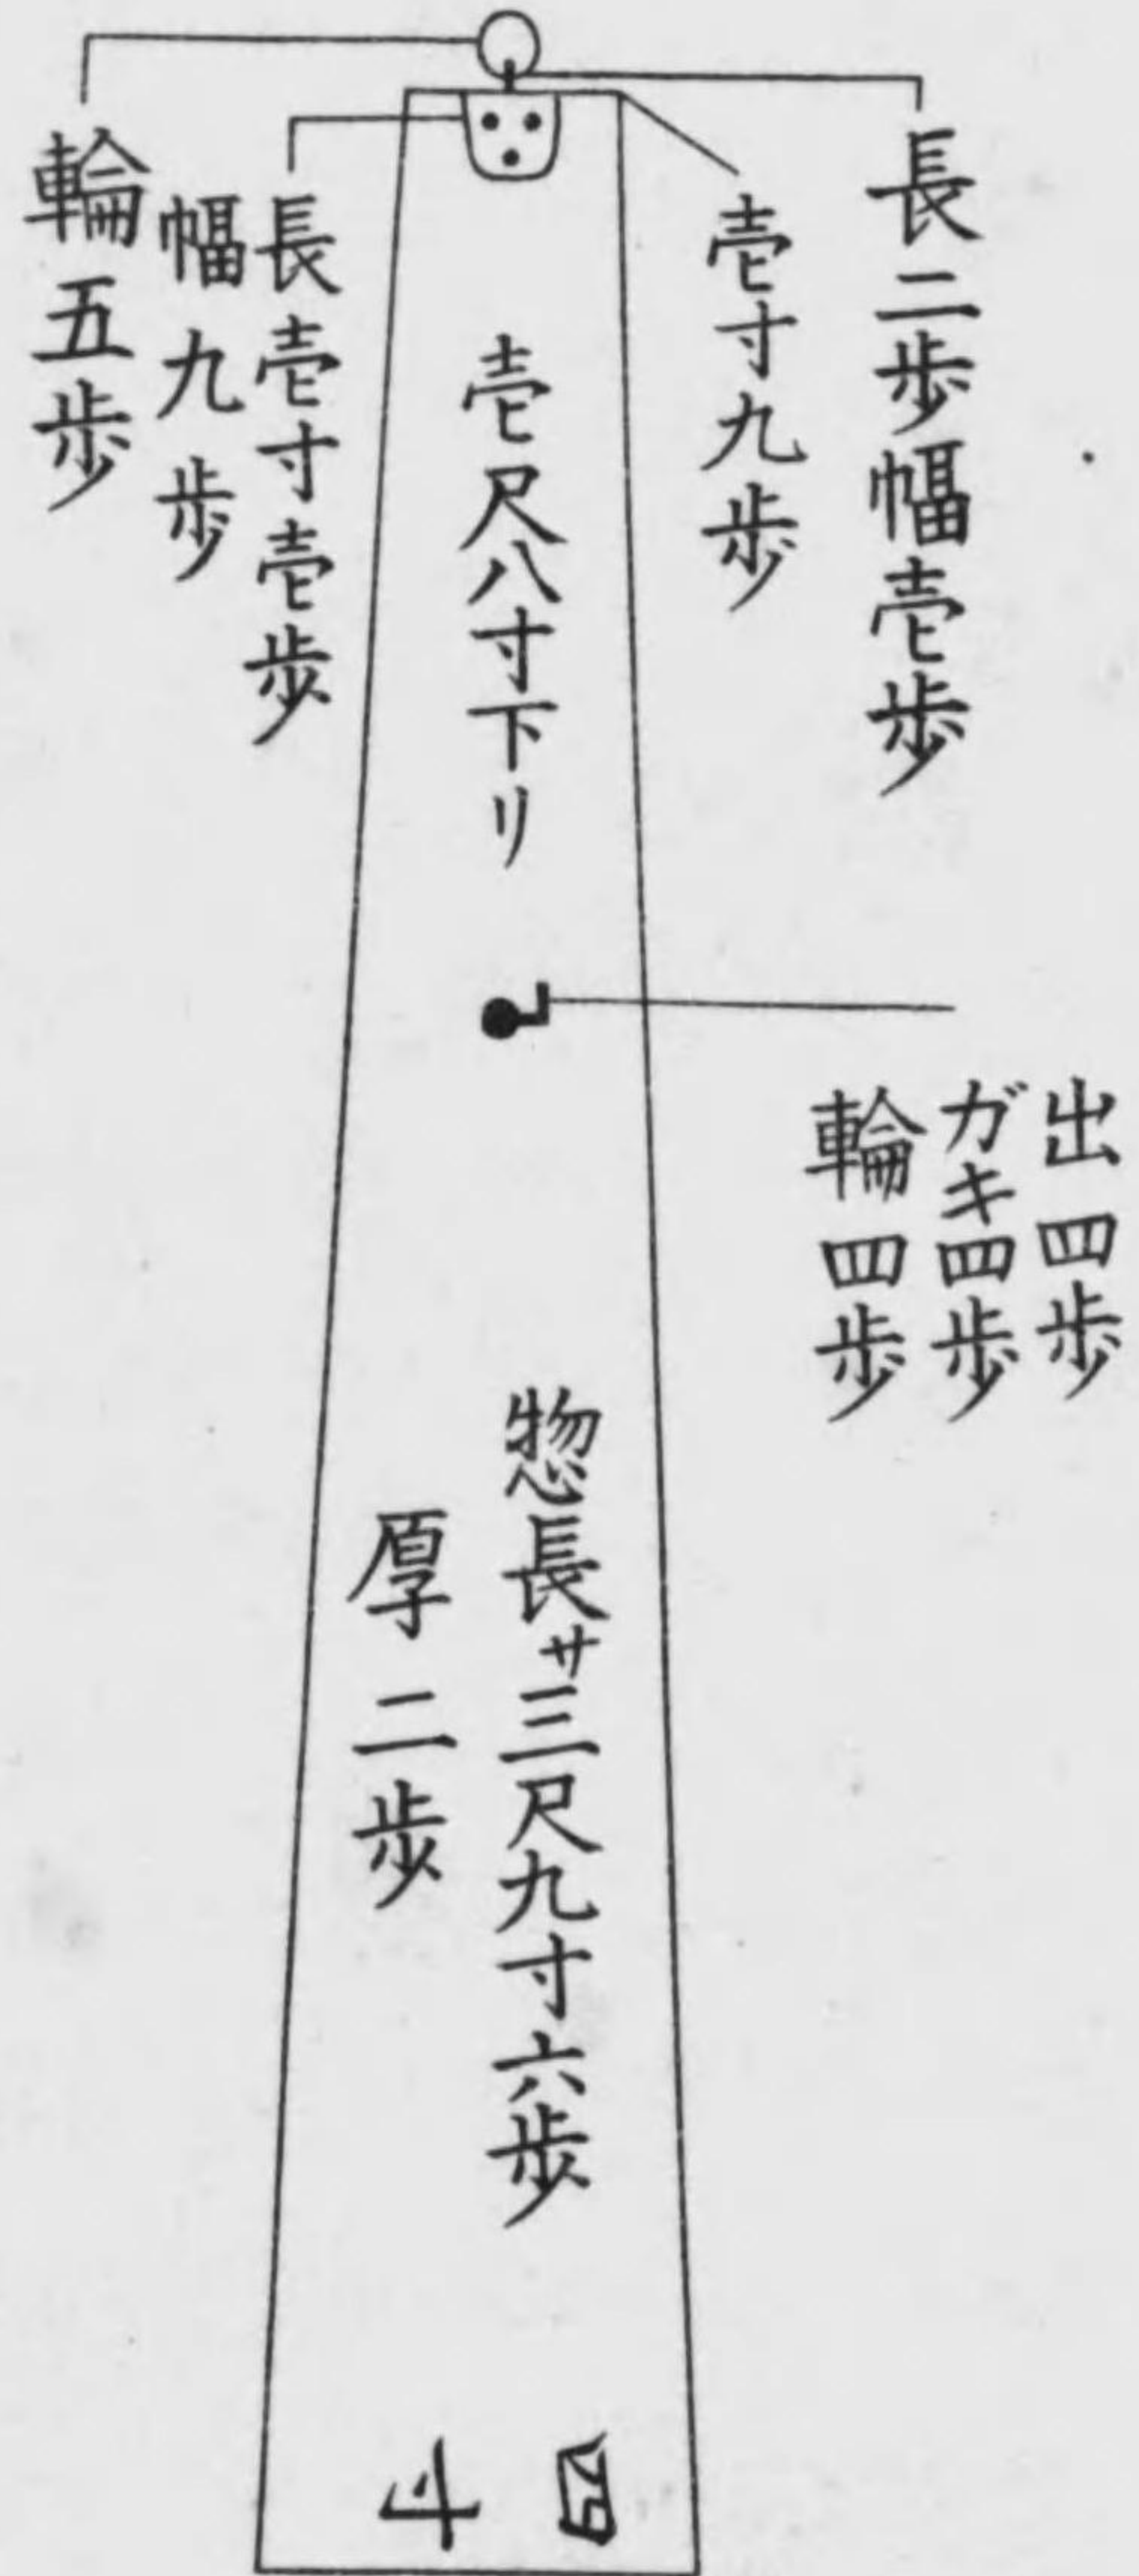 長二歩幅壱歩
壱寸九歩
壱尺八寸下リ
長壱寸壱歩
幅九歩
輪五歩
出四歩
ガキ四歩
輪四歩
惣長サ三尺九寸六歩
厚二歩
四寸